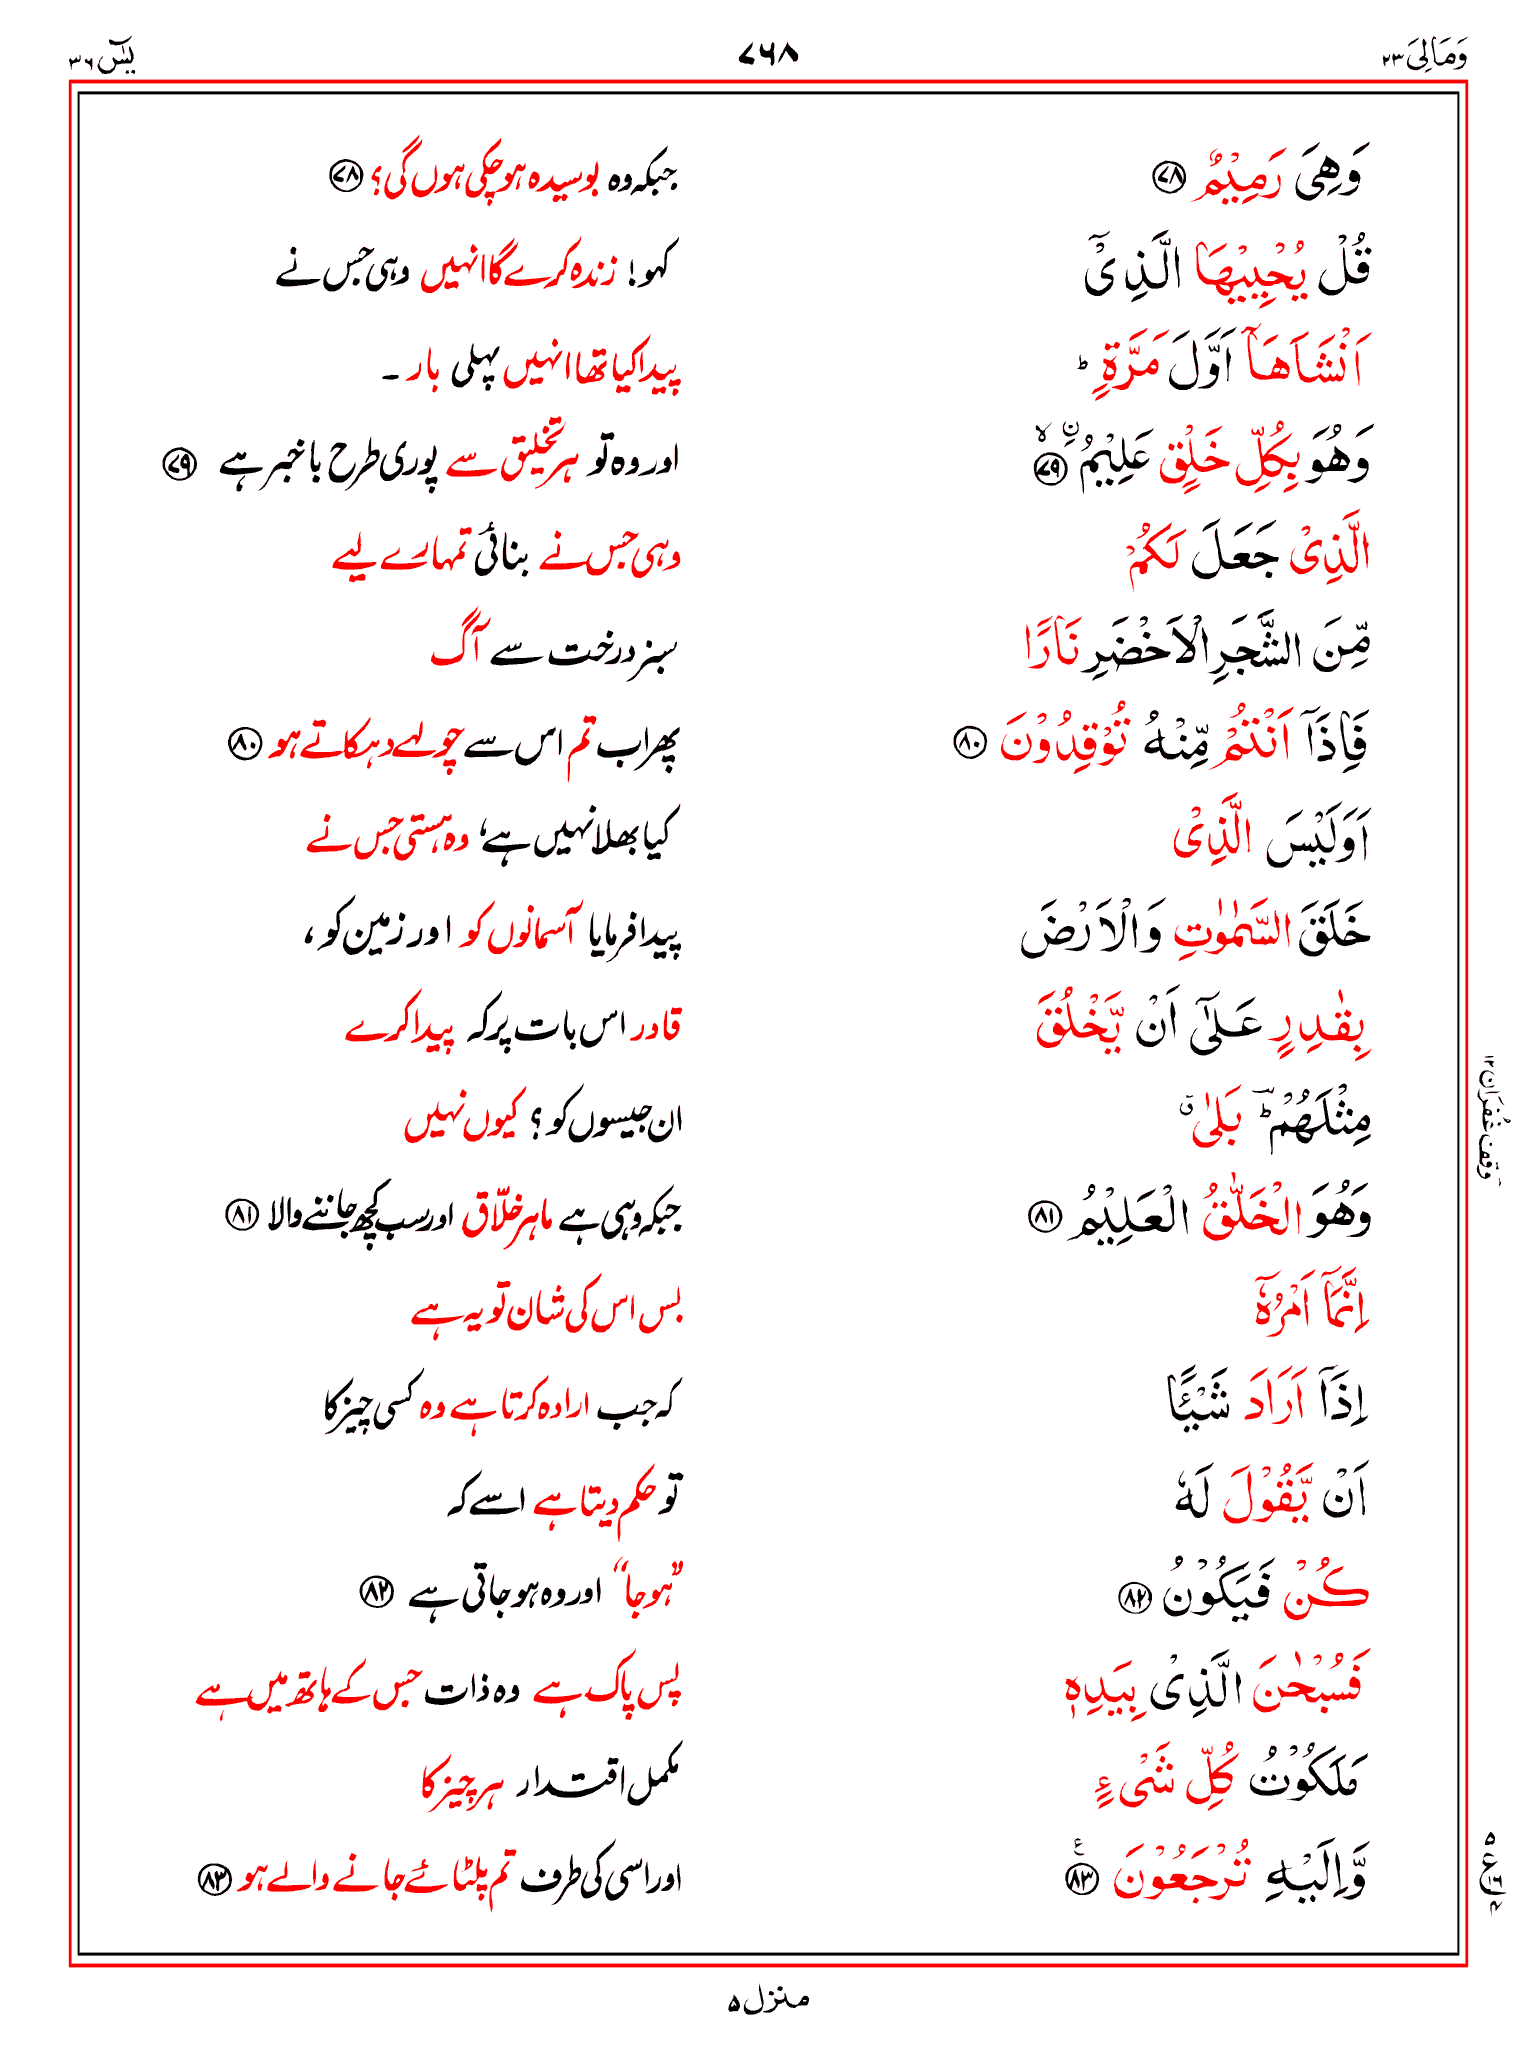 وَمَالِیَ ۲۳ ۷۶۸ یٰسٓ ۳۶
وَهِیَ رَمِیْمٌ ﴿۷۸﴾ جبکہ وہ بوسیدہ ہوچکی ہوں گی؟ ﴿۷۸﴾
قُلْ یُحْیِیْهَا الَّذِیْۤ کہو! زندہ کرے گا انہیں وہی جس نے
اَنْشَاَهَاۤ اَوَّلَ مَرَّةٍ ؕ پیدا کیا تھا انہیں پہلی بار ۔
وَهُوَ بِكُلِّ خَلْقٍ عَلِیْمُ ۙ﴿۷۹﴾ اور وہ تو ہر تخلیق سے پوری طرح باخبر ہے ﴿۷۹﴾
الَّذِیْ جَعَلَ لَكُمْ وہی جس نے بنائی تمہارے لیے
مِّنَ الشَّجَرِ الْاَخْضَرِ نَارًا سبز درخت سے آگ
فَاِذَاۤ اَنْتُمْ مِّنْهُ تُوْقِدُوْنَ ﴿۸۰﴾ پھر اب تم اس سے چولہے دہکاتے ہو ﴿۸۰﴾
اَوَلَیْسَ الَّذِیْ کیا بھلا نہیں ہے، وہ ہستی جس نے
خَلَقَ السَّمٰوٰتِ وَالْاَرْضَ پیدا فرمایا آسمانوں کو اور زمین کو،
بِقٰدِرٍ عَلٰۤی اَنْ یَّخْلُقَ قادر اس بات پر کہ پیدا کرے
مِثْلَهُمْ ؕ بَلٰی ۗ ان جیسوں کو؟ کیوں نہیں
وقف غفران ۱۲
وَهُوَ الْخَلّٰقُ الْعَلِیْمُ ﴿۸۱﴾ جبکہ وہی ہے ماہر خلّاق اور سب کچھ جاننے والا ﴿۸۱﴾
اِنَّمَاۤ اَمْرُهٗۤ بس اس کی شان تو یہ ہے
اِذَاۤ اَرَادَ شَیْـًٔا کہ جب ارادہ کرتا ہے وہ کسی چیز کا
اَنْ یَّقُوْلَ لَهٗ تو حکم دیتا ہے اسے کہ
كُنْ فَیَكُوْنُ ﴿۸۲﴾ ”ہوجا“ اور وہ ہو جاتی ہے ﴿۸۲﴾
فَسُبْحٰنَ الَّذِیْ بِیَدِهٖ پس پاک ہے وہ ذات جس کے ہاتھ میں ہے
مَلَكُوْتُ كُلِّ شَیْءٍ مکمل اقتدار ہر چیز کا
وَّاِلَیْهِ تُرْجَعُوْنَ ﴿۸۳﴾ اور اسی کی طرف تم پلٹائے جانے والے ہو ﴿۸۳﴾
۵ ع ۱۶ ۴
منزل ۵